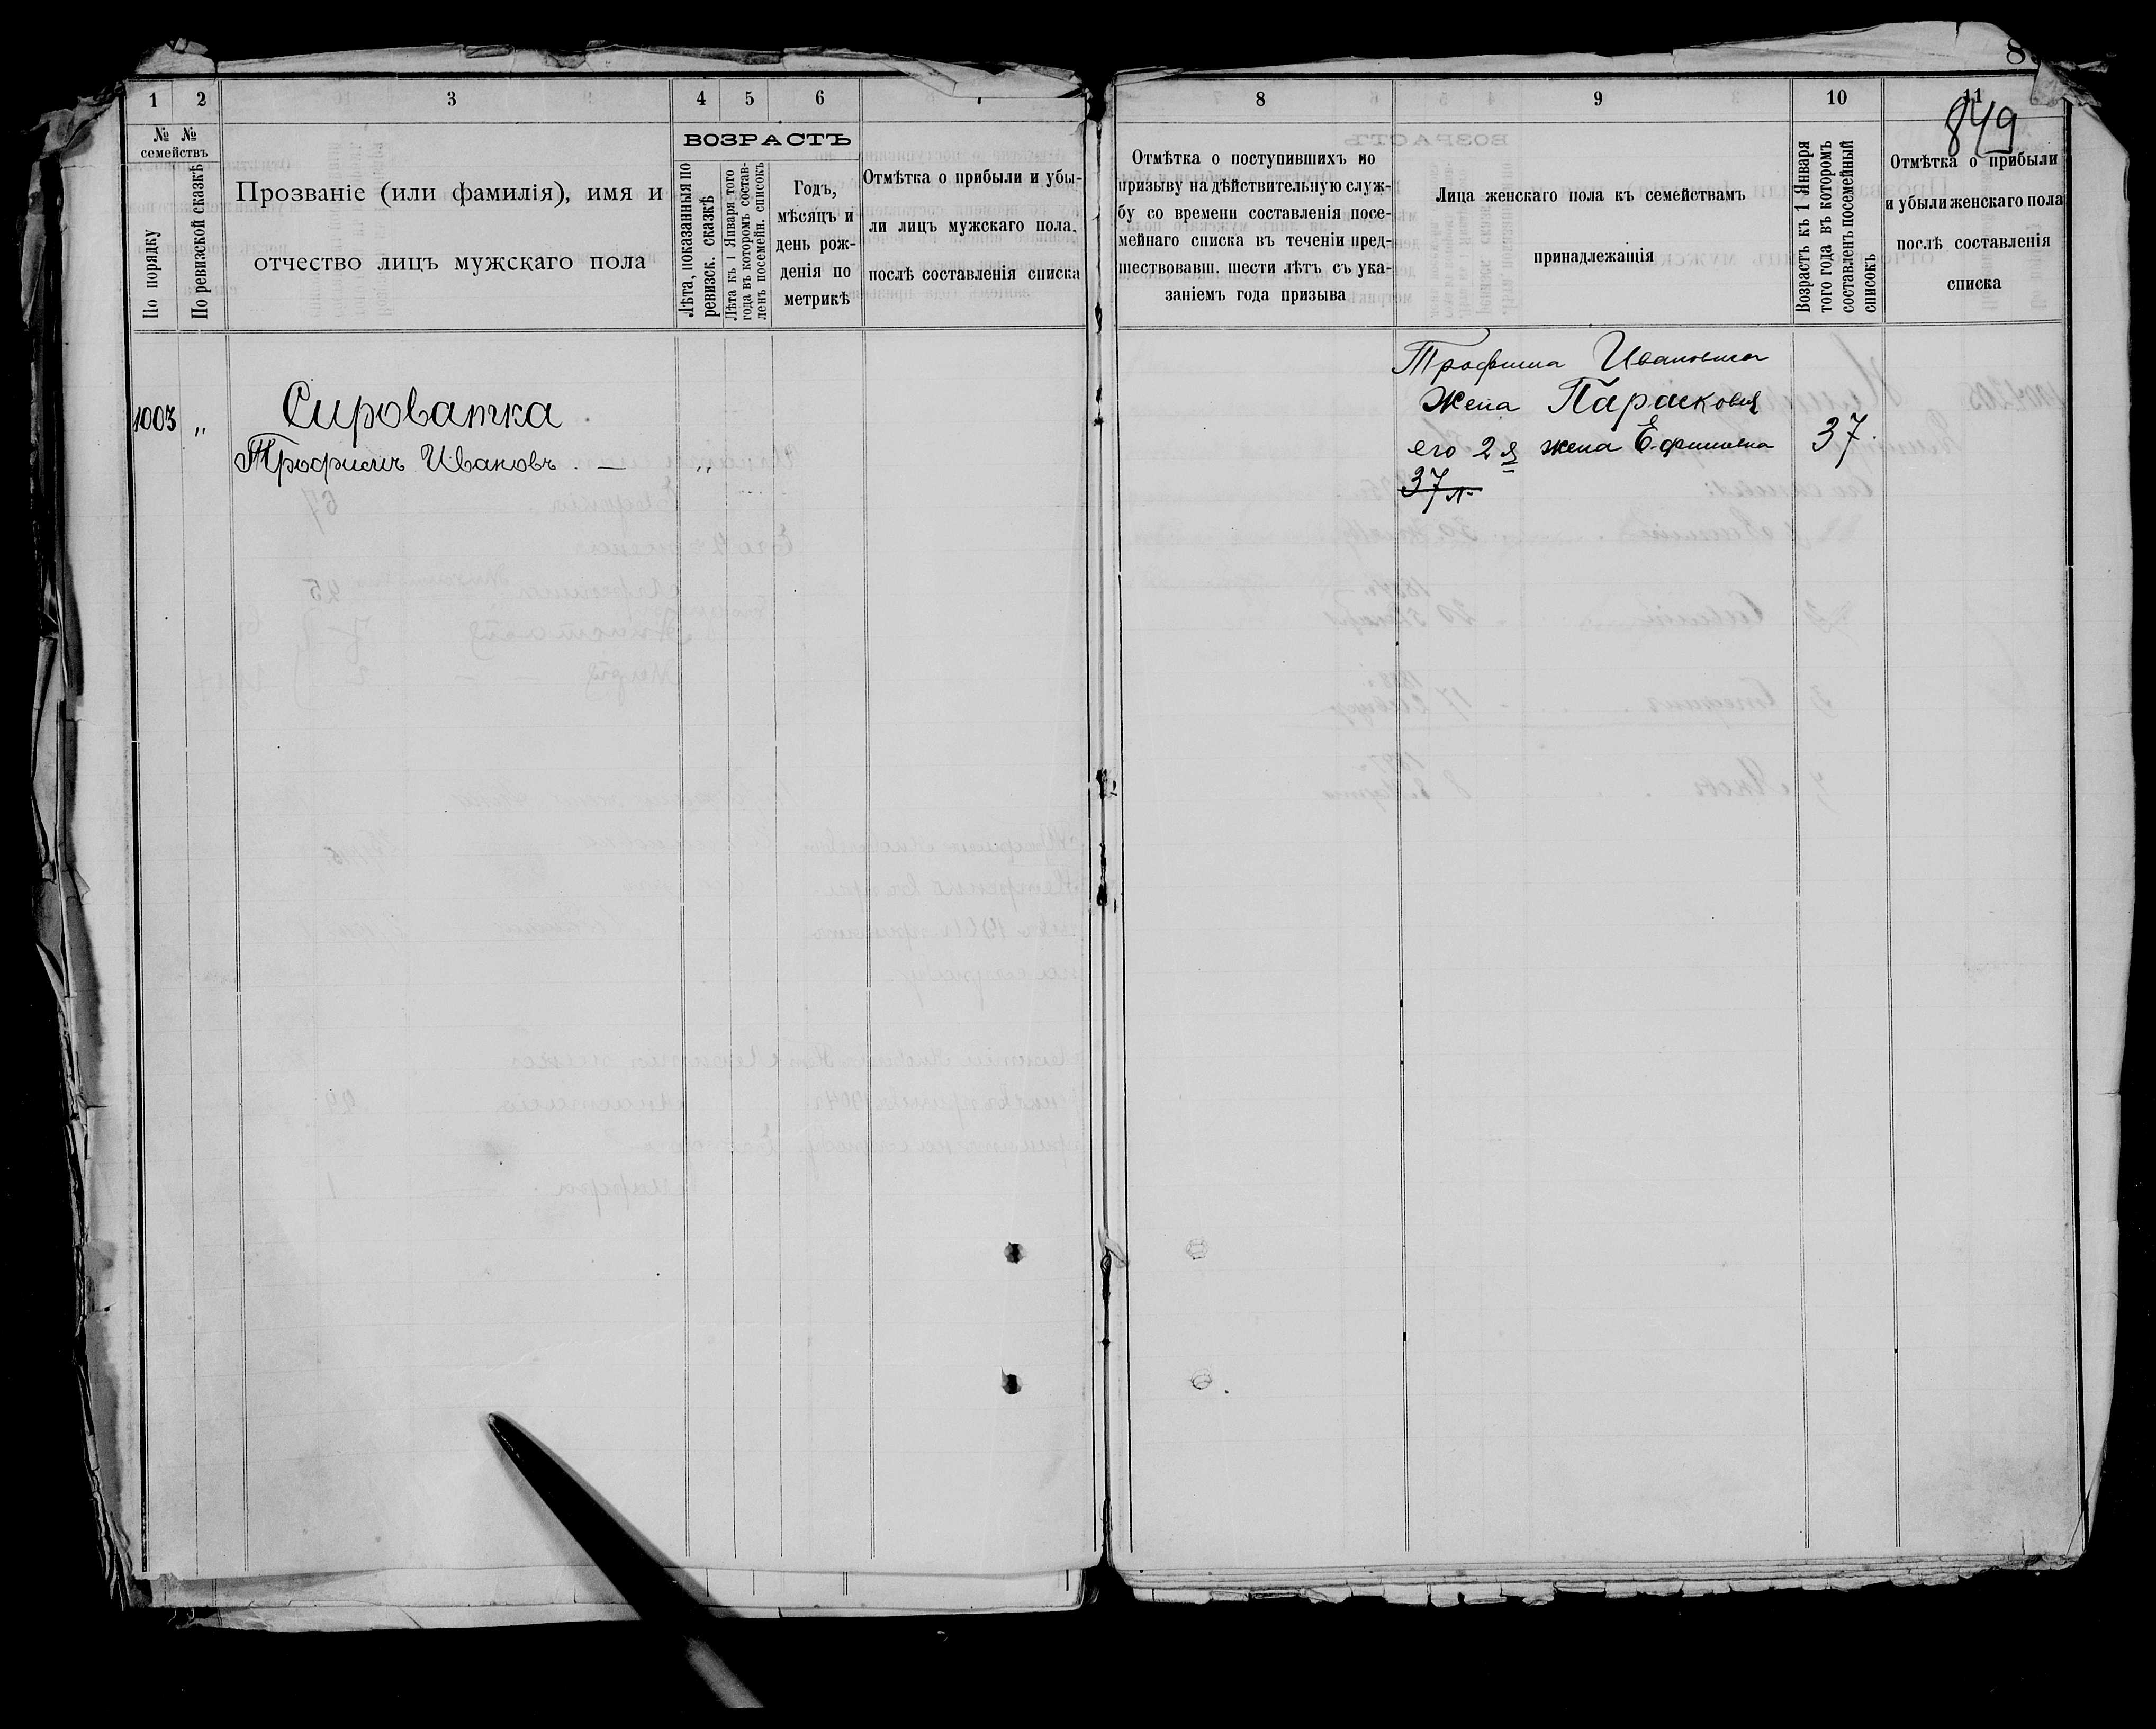 1 2 3 4 5 6
ВОЗРАСТЪ
№ № семействъ
По порядку
По ревизской сказкѣ
Прозваніе (или фамилія), имя и
отчество лицъ мужскаго пола
Лѣта, показанныя по
ревизск. сказкѣ
Лѣта къ 1 Января того
года въ которомъ состав-
ленъ посемейн. списокъ
Годъ,
мѣсяцъ и
день рож-
денія по
метрикѣ
Отмѣтка о прибыли и убы-
ли лицъ мужскаго пола,
послѣ составленія списка
1003 „ Сироватка
Трофимъ Ивановъ . — „
8
849
8 9 10 11
Отмѣтка о поступившихъ по
призыву на дѣйствительную служ-
бу со времени составленія посе-
мейнаго списка въ теченіи пред-
шествовавш. шести лѣтъ съ ука-
заніемъ года призыва
Лица женскаго пола къ семействамъ
принадлежащія
Возрастъ къ 1 Января
того года въ которомъ
составленъ посемейный
списокъ
Отмѣтка о прибыли
и убыли женскаго пола
послѣ составленія
списка
Трофима Ивановича
Жена Парасковія
его 2я жена Ефимовна 37.
37 л